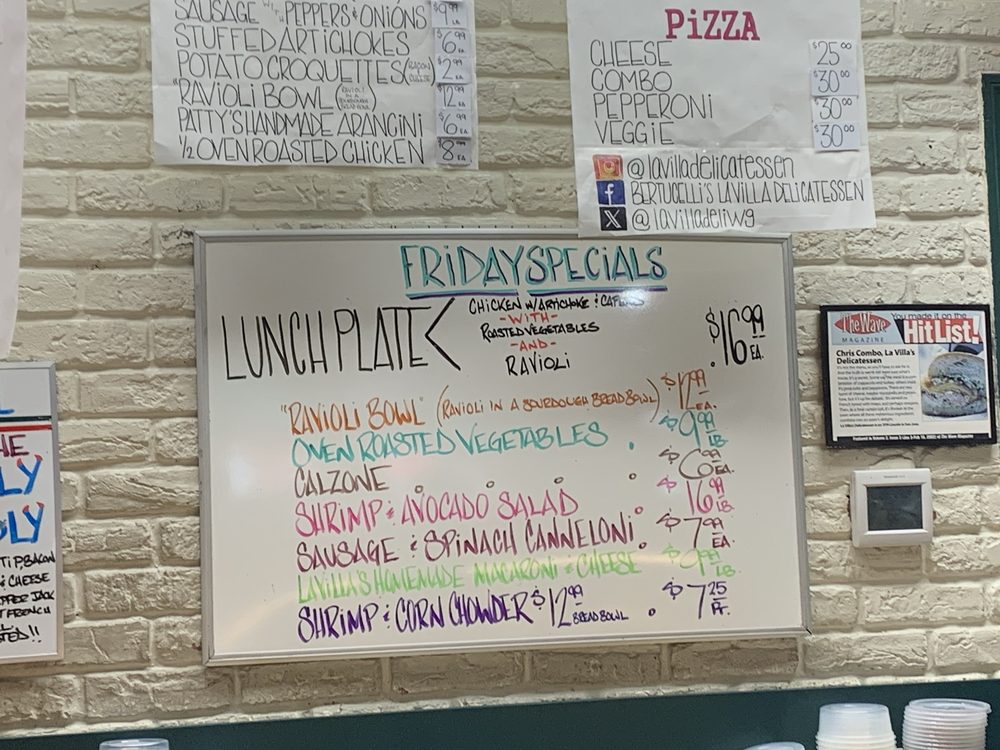 SAUSAGE WITH PEPPERS & ONIONS $9.99 LB
STUFFED ARTICHOKES $6.99 EA
POTATO CROQUETTES (BACON & CHEESE) $2.99 EA
"RAVIOLI BOWL $12.99 EA
PATTY'S HANDMADE ARANCINI $6.99 EA
1/2 OVEN ROASTED CHICKEN $8.99 EA
PiZZA
CHEESE $25.00
COMBO $30.00
PEPPERONI $30.00
VEGGIE $30.00
@lavilladelicatessen
f BERTUCELLI'S LA VILLA DELICATESSEN
X @lavilladeliwg
FRIDAY SPECIALS
LUNCH PLATE < CHICKEN W/ ARTICHOKE & CAPERS
-WITH-
ROASTED VEGETABLES
-AND-
RAVIOLI
$16.99 EA.
"RAVIOLI BOWL" (RAVIOLI IN A SOURDOUGH BREAD BOWL) $12.99 EA.
OVEN ROASTED VEGETABLES . $9.99 LB
CALZONE . . . . $6.99 EA.
SHRIMP & AVOCADO SALAD . $16.99 LB
SAUSAGE & SPINACH CANNELONI . $7.99 EA.
LAVILLA'S HOMEMADE MACARONI & CHEESE $9.99 LB
SHRIMP & CORN CHOWDER $12.99 BREAD BOWL . $7.25 PT.
The Wave
MAGAZINE
You made it on the
Hit List!
Chris Combo, La Villa's
Delicatessen
HE
LY
LY
BACON
& CHEESE
PER JACK
FRENCH
TED!!